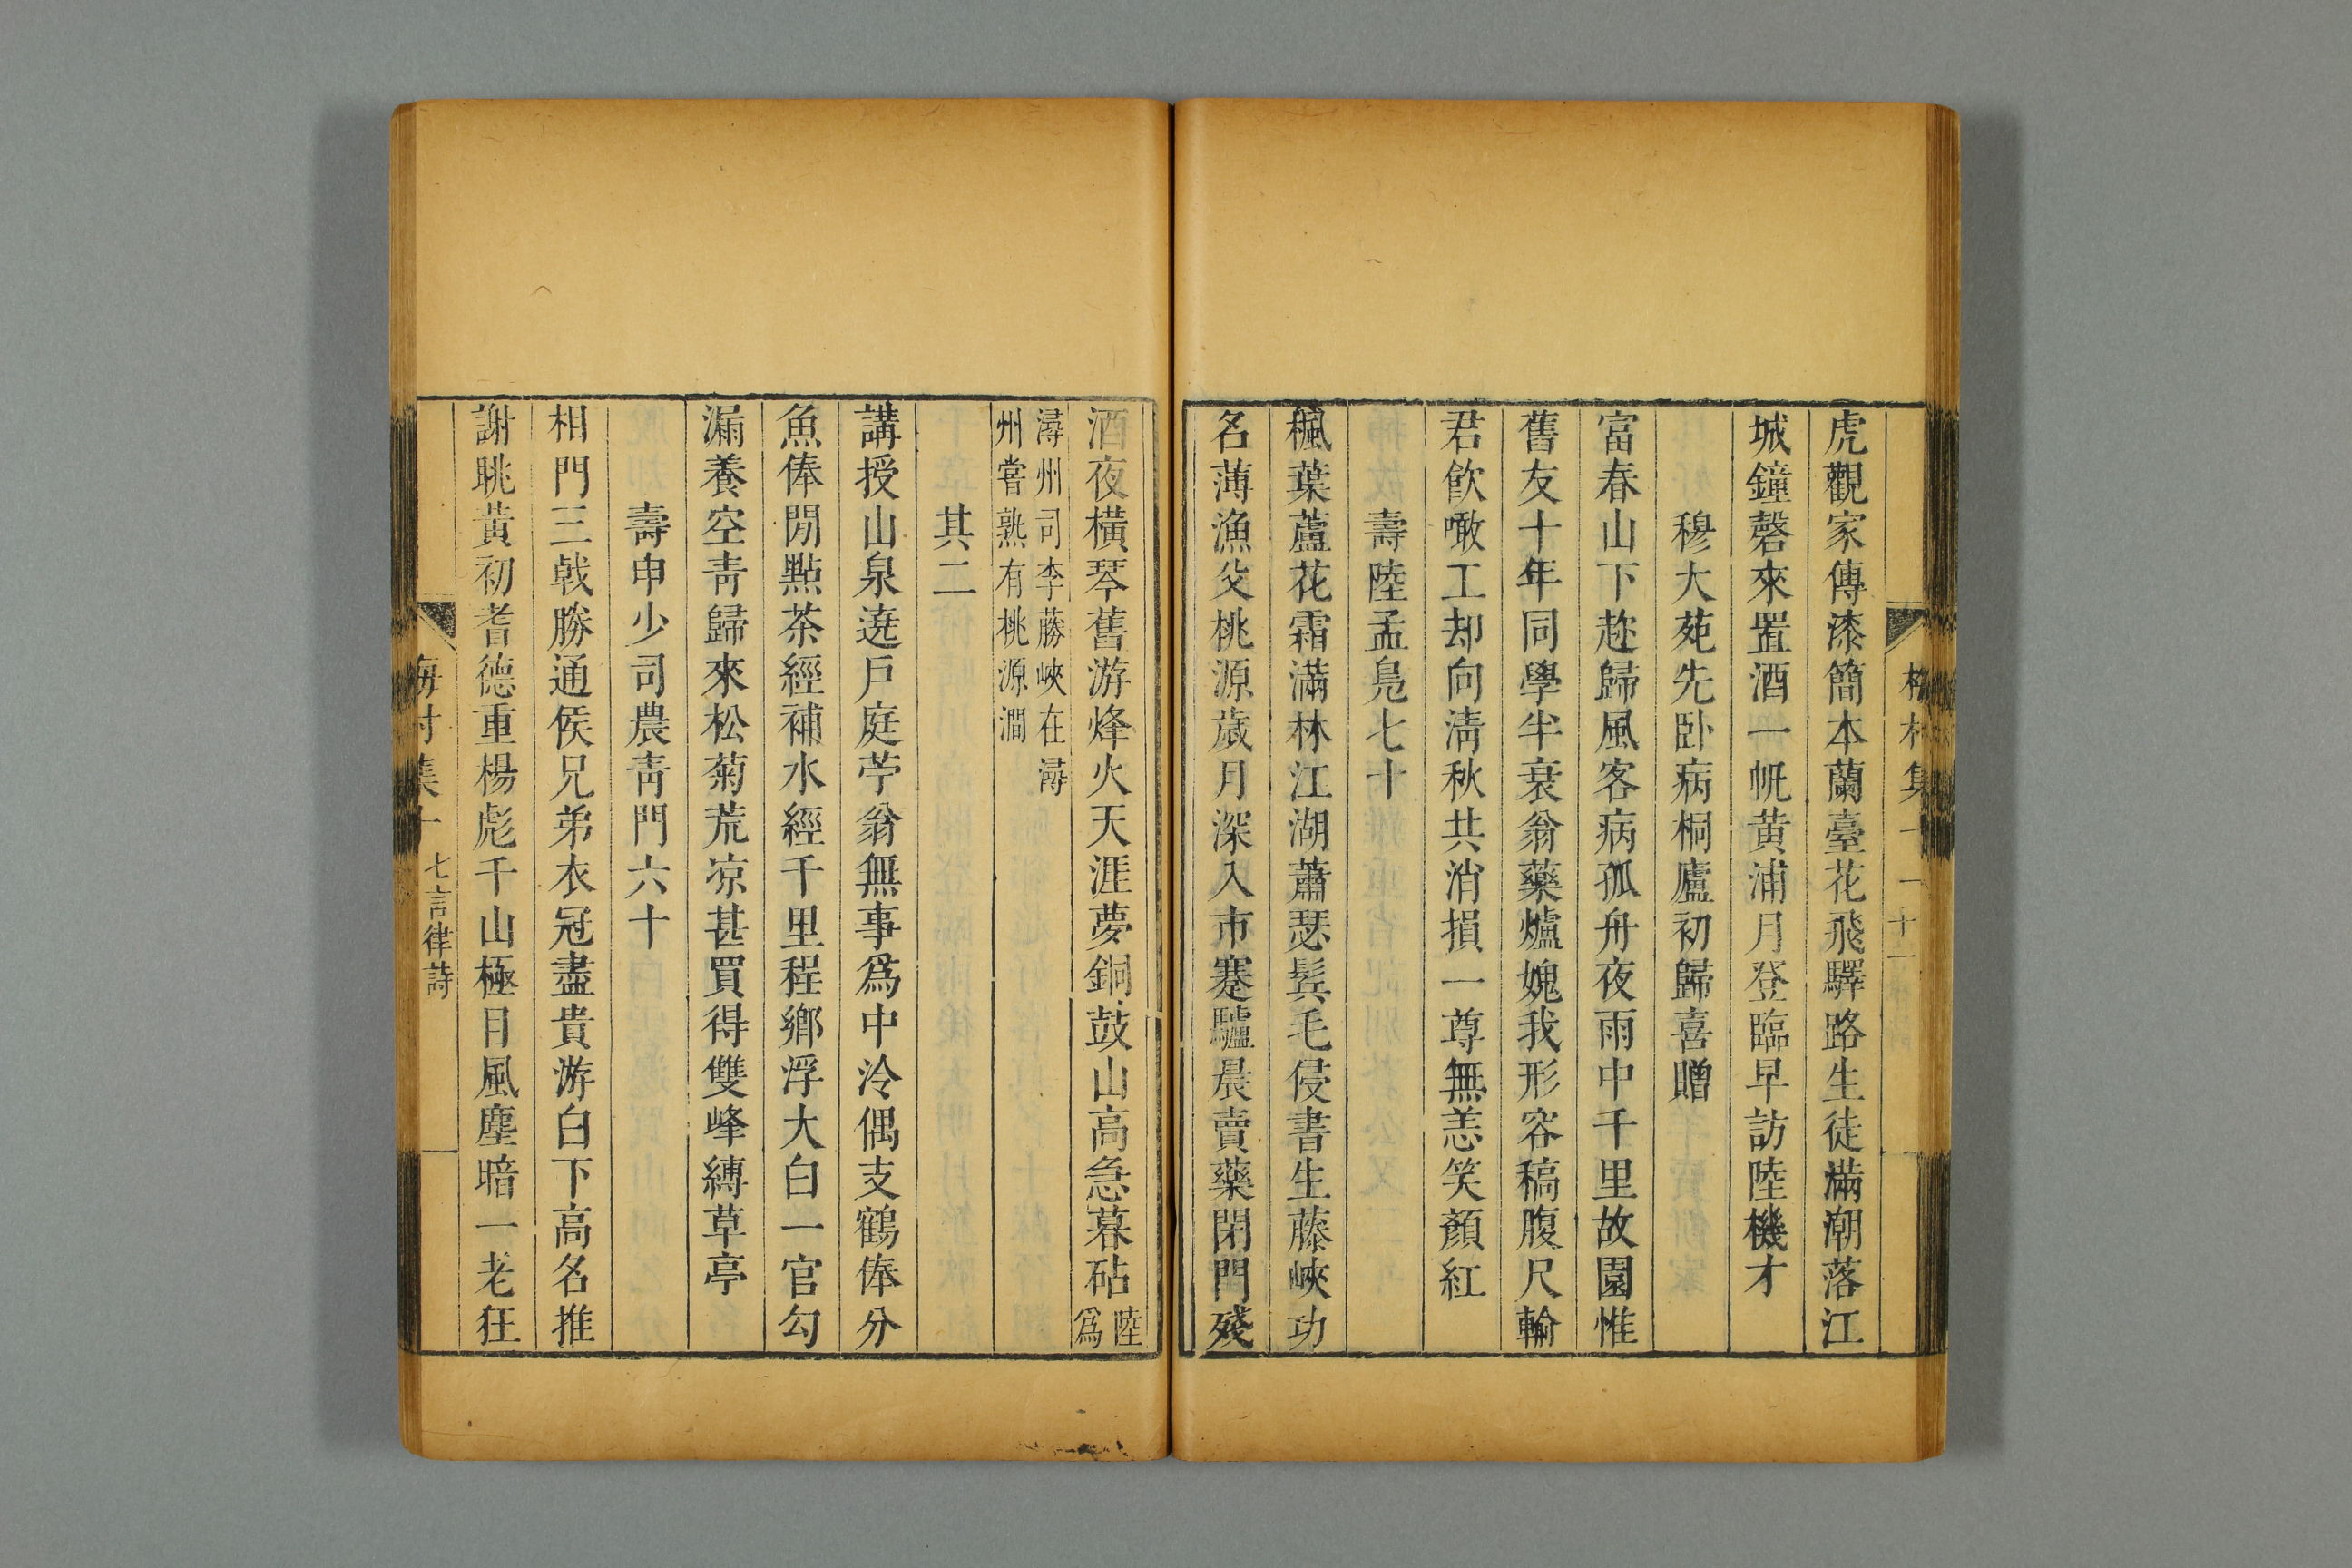 虎觀家傳漆簡本蘭臺花飛驛路生徒滿潮落江
城鐘磬來置酒一帆黄浦月登臨早訪陸機才
穆大苑先卧病桐廬初歸喜贈
富春山下趂歸風客病孤舟夜雨中千里故園惟
舊友十年同學半衰翁藥爐媿我形容稿腹尺輸
君飲噉工却向淸秋共消損一尊無恙笑顏紅
壽陸孟鳧七十
楓葉蘆花霜滿林江湖蕭瑟鬂毛侵書生藤峽功
名薄漁父桃源歲月深入市蹇驢晨賣藥閉門殘
酒夜橫琴舊游烽火天涯夢銅鼓山高急暮砧陸爲
潯州司李藤峽在潯
州嘗熟有桃源澗
其二
講授山泉遶戸庭苧翁無事爲中泠偶支鶴俸分
魚俸閒點茶經補水經千里程鄉浮大白一官勾
漏養空靑歸來松菊荒凉甚買得雙峰縛草亭
壽申少司農靑門六十
相門三戟勝通侯兄弟衣冠盡貴游白下高名推
謝眺黃初耆德重楊彪千山極目風塵暗一老狂
七言律詩